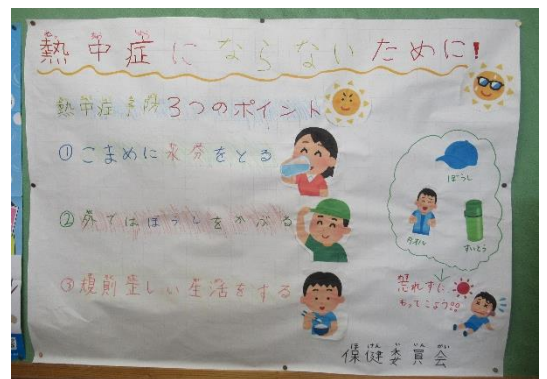 熱中症にならないために!
熱中症予防 3つのポイント
①こまめに水分をとる
②外ではぼうしをかぶる
③規則正しい生活をする
ぼうし
タオル
すいとう
忘れずに
もってこよう!!
ほけんいいんかい
保健委員会